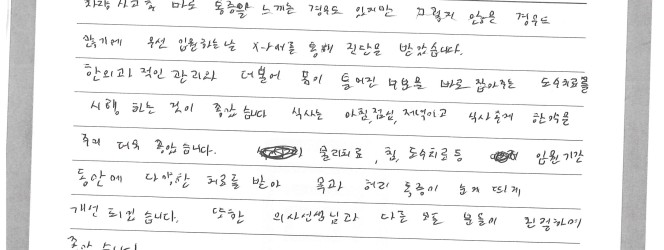 차량 사고 후 바로 통증을 느끼는 경우도 있지만 그렇지 않을 경우도
많기에 우선 입원하는날 X-ray를 통해 진단을 받았습니다.
한의과적인 관리와 더불어 몸이 틀어진 부분을 바로 잡아주는 도수치료를
시행 하는 것이 좋았습니다 식사는 아침,점심,저녁이고 식사후에 한약을
주어 더욱 좋았습니다. 물리치료, 침, 도수치료 등 입원기간
동안에 다양한 치료를 받아 목과 허리 통증이 눈에 띄게
개선 되었습니다. 또한 의사선생님과 다른 모든 분들이 친절하여
좋았습니다